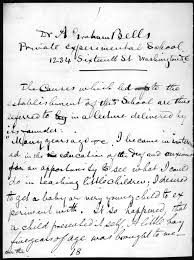 1
Dr A Graham Bell's
Private Experimental School,
1234 Sixteenth St Washington D.C.
The Causes which led to the
establishment of this School are thus
referred to by in a lecture delivered by
its founder
Many years ago I became interest-
ed in the education of the deaf and
for an opportunity to see what I could
do in teaching little children; I decided
to get a baby or very young child to ex-
periment with. It so happened, that
a child presented itself. A little boy
five years of age was brought to me